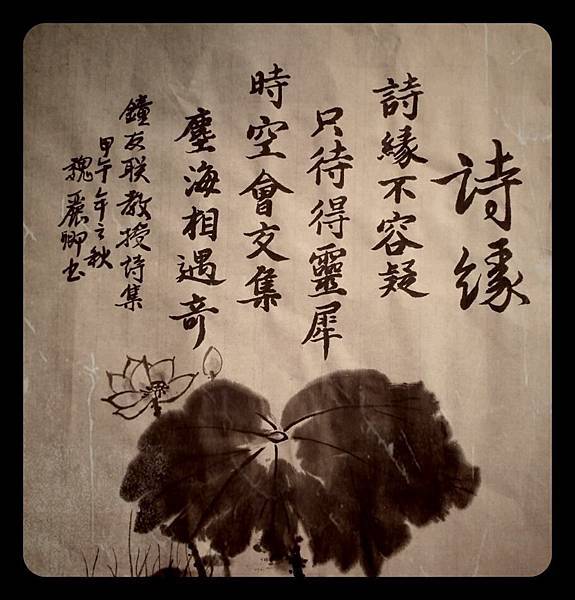 詩緣
詩緣不容疑
只待得靈犀
時空會交集
塵海相遇奇
鐘友联教授詩集
甲午年之秋
魏麗卿书